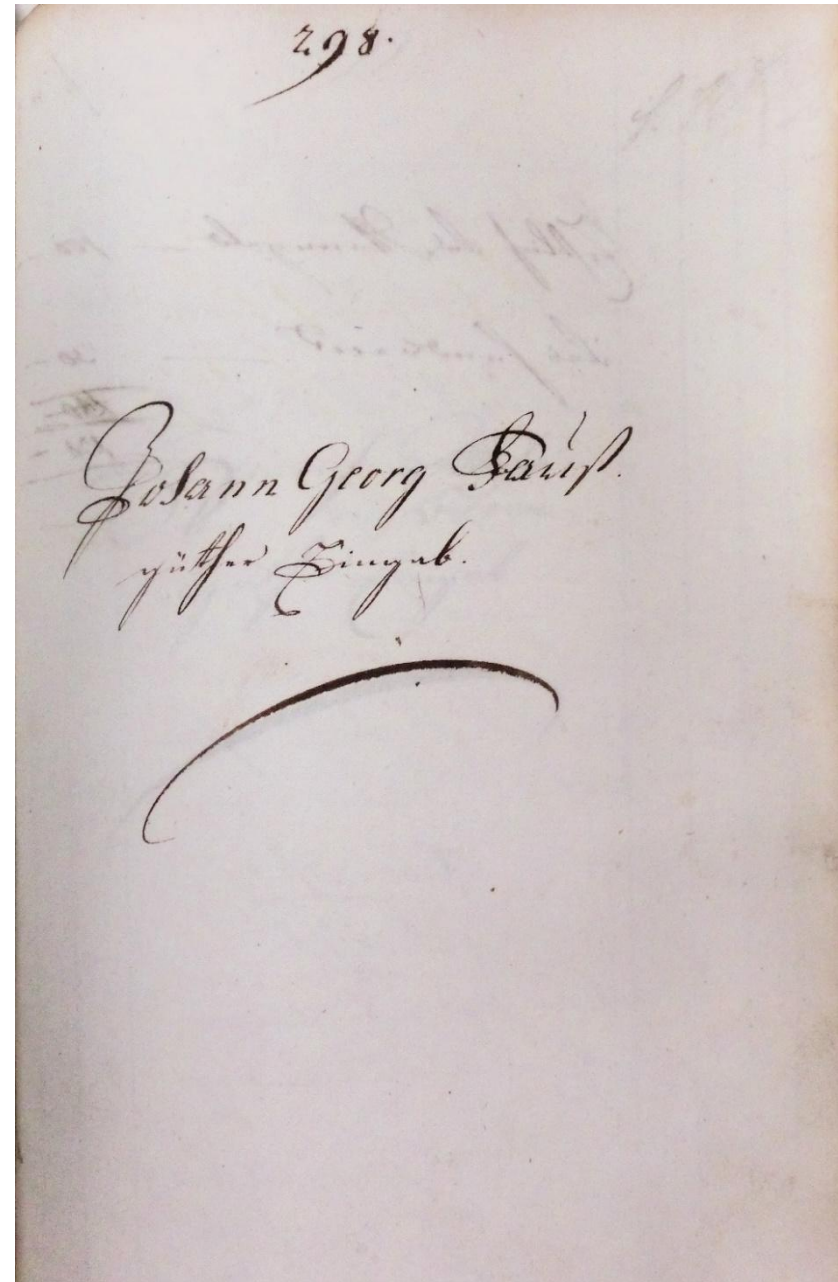 298.
Johann Georg Faust.
güther Eingab.